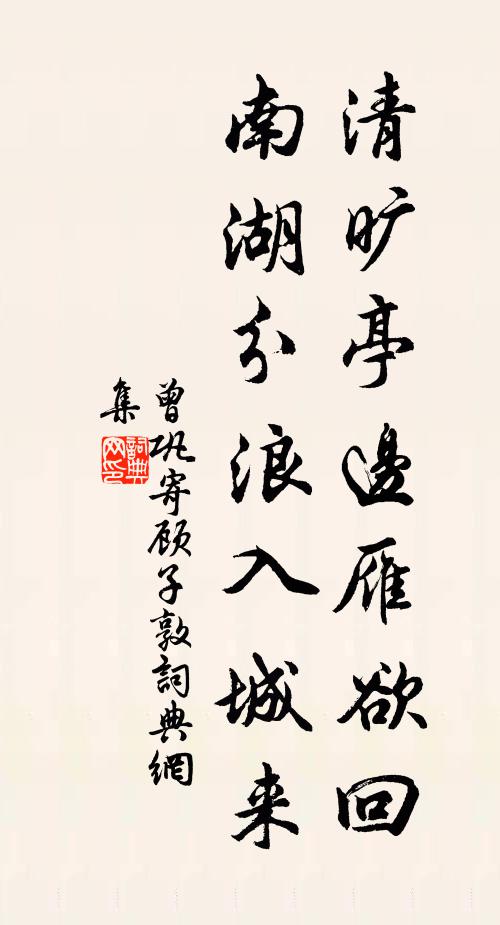 清旷亭邊雁欲回
南湖分浪入城来
曾巩寄顾子敦詞典網
集
詞典网印